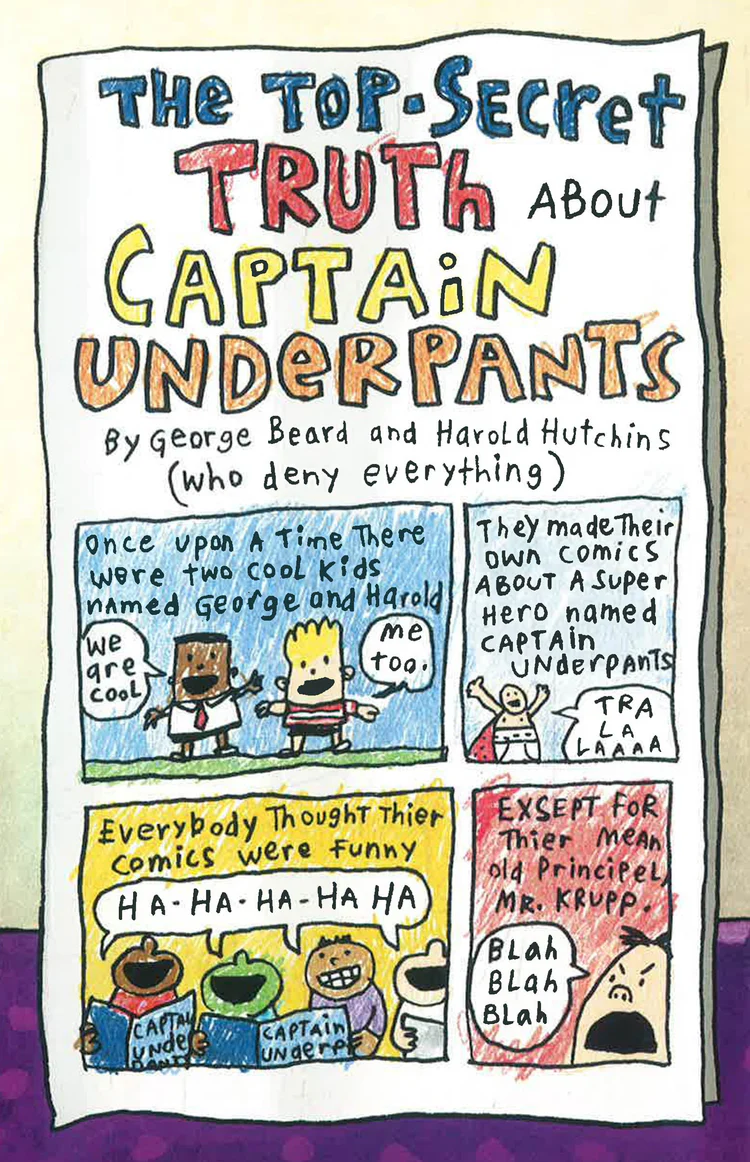 THE TOP-SECret
TRUTh ABOUt
CAPTAiN
UNDeRPANTS
By George Beard and Harold Hutchins
(who deny everything)
Once upon A Time There
were two cool Kids
nAmed George and Harold
We
are
cool
me
too.
They made Their
own comics
ABOUT A Super
Hero named
CAPTAin
UNderpANTS
TRA
LA
LAAAA
Everybody Thought Thier
comics were funny
HA-HA-HA-HA HA
CAPTAI
UNde
PANTS
CAPTAin
Underp
EXSEPT FoR
Thier MeAn
old PrinciPel,
MR. KRUPP.
BLah
BLah
BLah